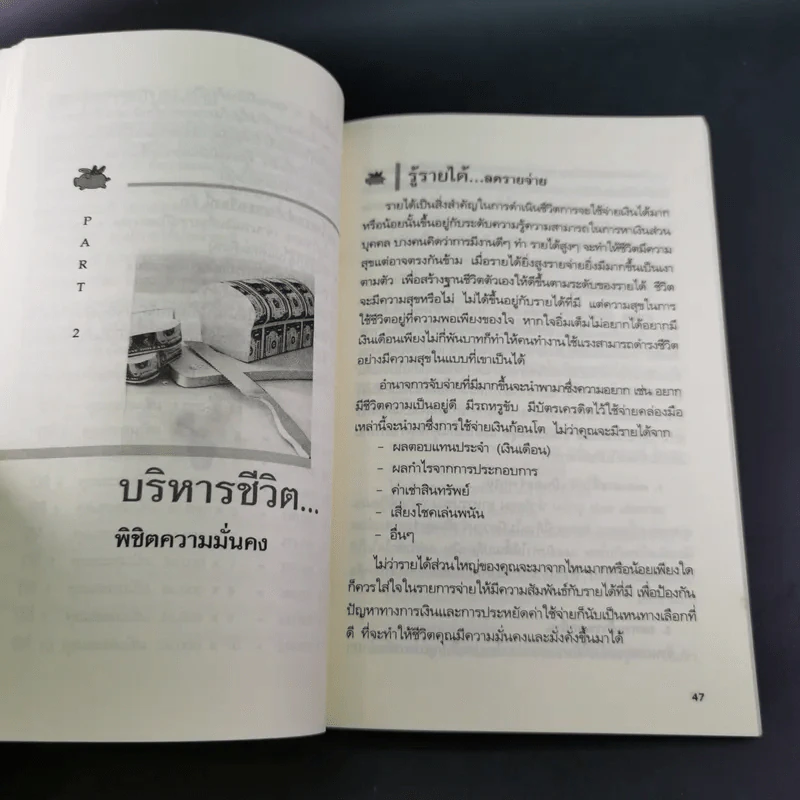 PART 2
บริหารชีวิต...
พิชิตความมั่นคง
รู้รายได้...ลดรายจ่าย
รายได้เป็นสิ่งสำคัญในการดำเนินชีวิตการจะใช้จ่ายเงินได้มาก
หรือน้อยนั้นขึ้นอยู่กับระดับความรู้ความสามารถในการหาเงินส่วน
บุคคล บางคนคิดว่าการมีงานดีๆ ทำ รายได้สูงๆ จะทำให้ชีวิตมีความ
สุขแต่อาจตรงกันข้าม เมื่อรายได้ยิ่งสูงรายจ่ายยิ่งมีมากขึ้นเป็นเงา
ตามตัว เพื่อสร้างฐานชีวิตตัวเองให้ดีขึ้นตามระดับของรายได้ ชีวิต
จะมีความสุขหรือไม่ ไม่ได้ขึ้นอยู่กับรายได้ที่มี แต่ความสุขในการ
ใช้ชีวิตอยู่ที่ความพอเพียงของใจ หากใจอิ่มเต็มไม่อยากได้อยากมี
มีเงินเดือนเพียงไม่กี่พันบาทก็ทำให้คนทำงานใช้แรงสามารถดำรงชีวิต
อย่างมีความสุขในแบบที่เขาเป็นได้
อำนาจการจับจ่ายที่มีมากขึ้นจะนำพามาซึ่งความอยาก เช่น อยาก
มีชีวิตความเป็นอยู่ดี มีรถหรูขับ มีบัตรเครดิตไว้ใช้จ่ายคล่องมือ
เหล่านี้จะนำมาซึ่งการใช้จ่ายเงินก้อนโต ไม่ว่าคุณจะมีรายได้จาก
- ผลตอบแทนประจำ (เงินเดือน)
- ผลกำไรจากการประกอบการ
- ค่าเช่าสินทรัพย์
- เสี่ยงโชคเล่นพนัน
- อื่นๆ
ไม่ว่ารายได้ส่วนใหญ่ของคุณจะมาจากไหนมากหรือน้อยเพียงใด
ก็ควรใส่ใจในรายการจ่ายให้มีความสัมพันธ์กับรายได้ที่มี เพื่อป้องกัน
ปัญหาทางการเงินและการประหยัดค่าใช้จ่ายก็นับเป็นหนทางเลือกที่
ดี ที่จะทำให้ชีวิตคุณมีความมั่นคงและมั่งคั่งขึ้นมาได้
47